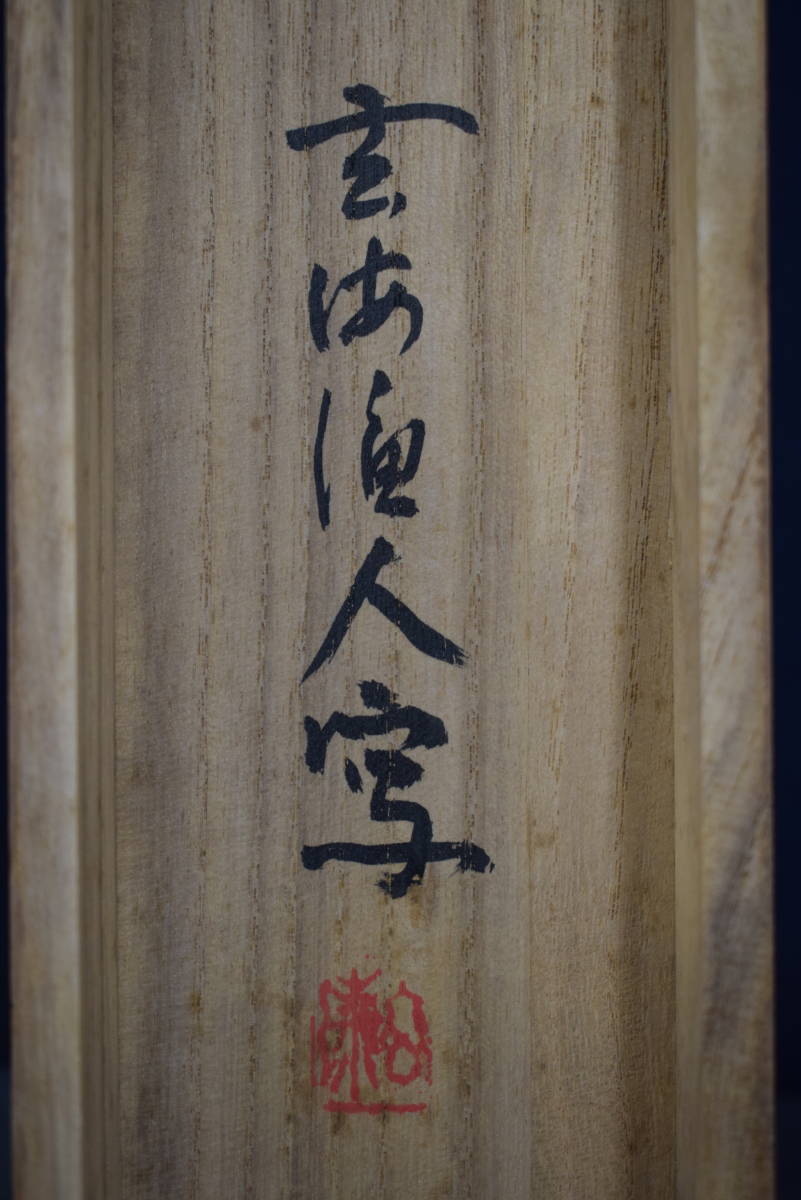 玄海漁人写